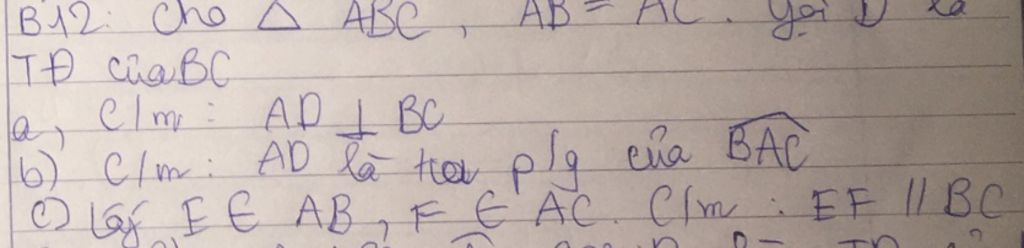 B12: Cho △ ABC, AB = AC. Gọi D là
TĐ của BC
a, C/m: AD ⊥ BC
b) C/m: AD là tia p/g của BAC
c) Lấy E ∈ AB, F ∈ AC. C/m: EF // BC